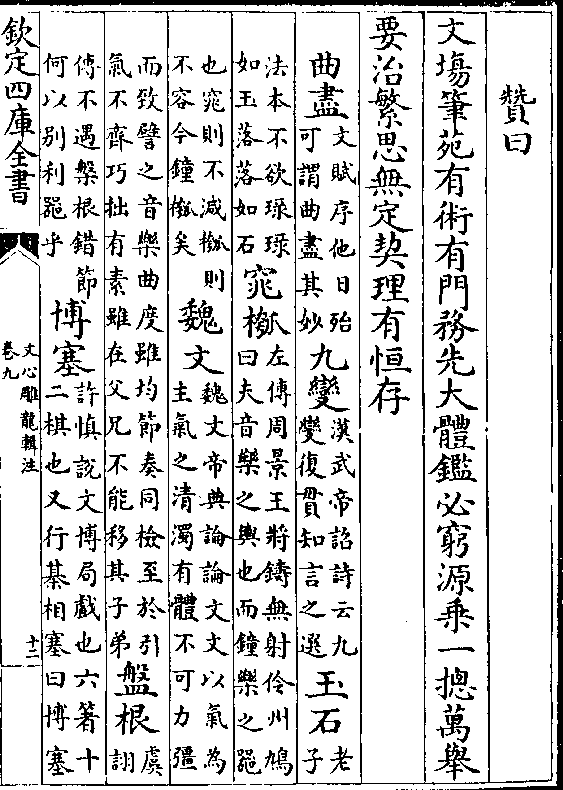 贊曰
文塲筆苑有術有門務先大體鑑必窮源乗一揔萬舉
要治繁思無定契理有恒存
曲盡
文賦序他日殆
可謂曲盡其妙
九變
漢武帝詔詩云九
變復貫知言之選
玉石
老
子
法本不欲琭琭
如玉落落如石
窕槬
左傳周景王將鑄無射伶州鳩
曰夫音樂之輿也而鐘樂之器
也窕則不減槬則
不容今鐘槬矣
魏文
魏文帝典論論文文以氣為
主氣之清濁有體不可力彊
而致譬之音樂曲度雖均節奏同檢至於引
氣不齊巧拙有素雖在父兄不能移其子弟
盤根
虞
詡
傳不遇槃根錯節
何以别利器乎
博塞
許慎說文博局戲也六箸十
二棋也又行棊相塞曰博塞
欽定四庫全書
文心雕龍輯注
卷九
十二